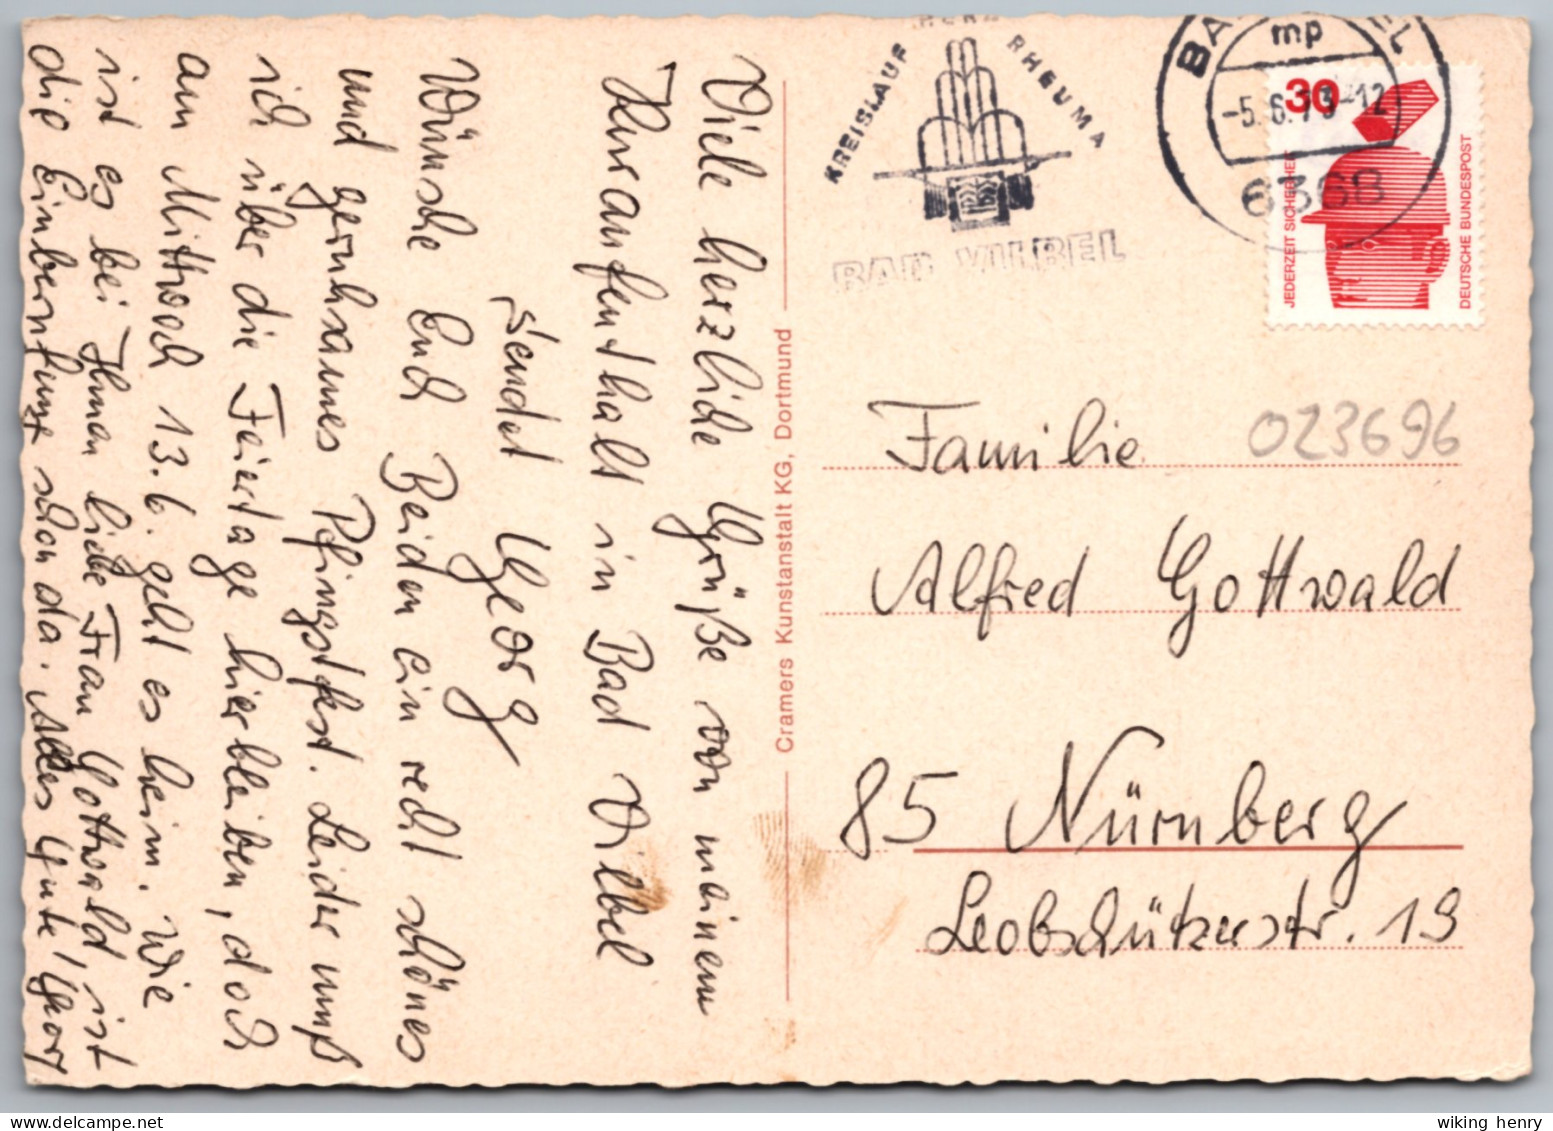 Viele herzliche Grüße von meinem
Kuraufenthalt in Bad Vilbel
sendet Georg
Wünsche Euch Beiden ein recht schönes
und geruhsames Pfingstfest. Leider muß
ich über die Feiertage hierbleiben, doch
am Mittwoch 13.6. geht es heim. Wie
ist es bei Ihnen liebe Frau Gottwald, ist
die Einberufung schon da. Alles Gute! Georg
Cramers Kunstanstalt KG, Dortmund
HERZ
KREISLAUF
RHEUMA
BAD VILBEL
mp
-5.6.73-12
6368
30
JEDERZEIT SICHERHEIT
DEUTSCHE BUNDESPOST
023696
Familie
Alfred Gottwald
85 Nürnberg
Leobschützerstr. 19
www.delcampe.net
wiking henry